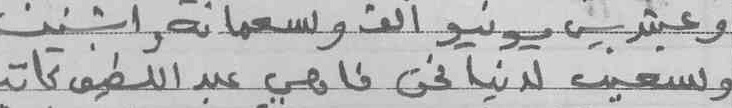 وعشرين يونيو الف وتسعمائة واثنين
وتسعين لدنيا نحن فاهي عبد اللطيف كاتب